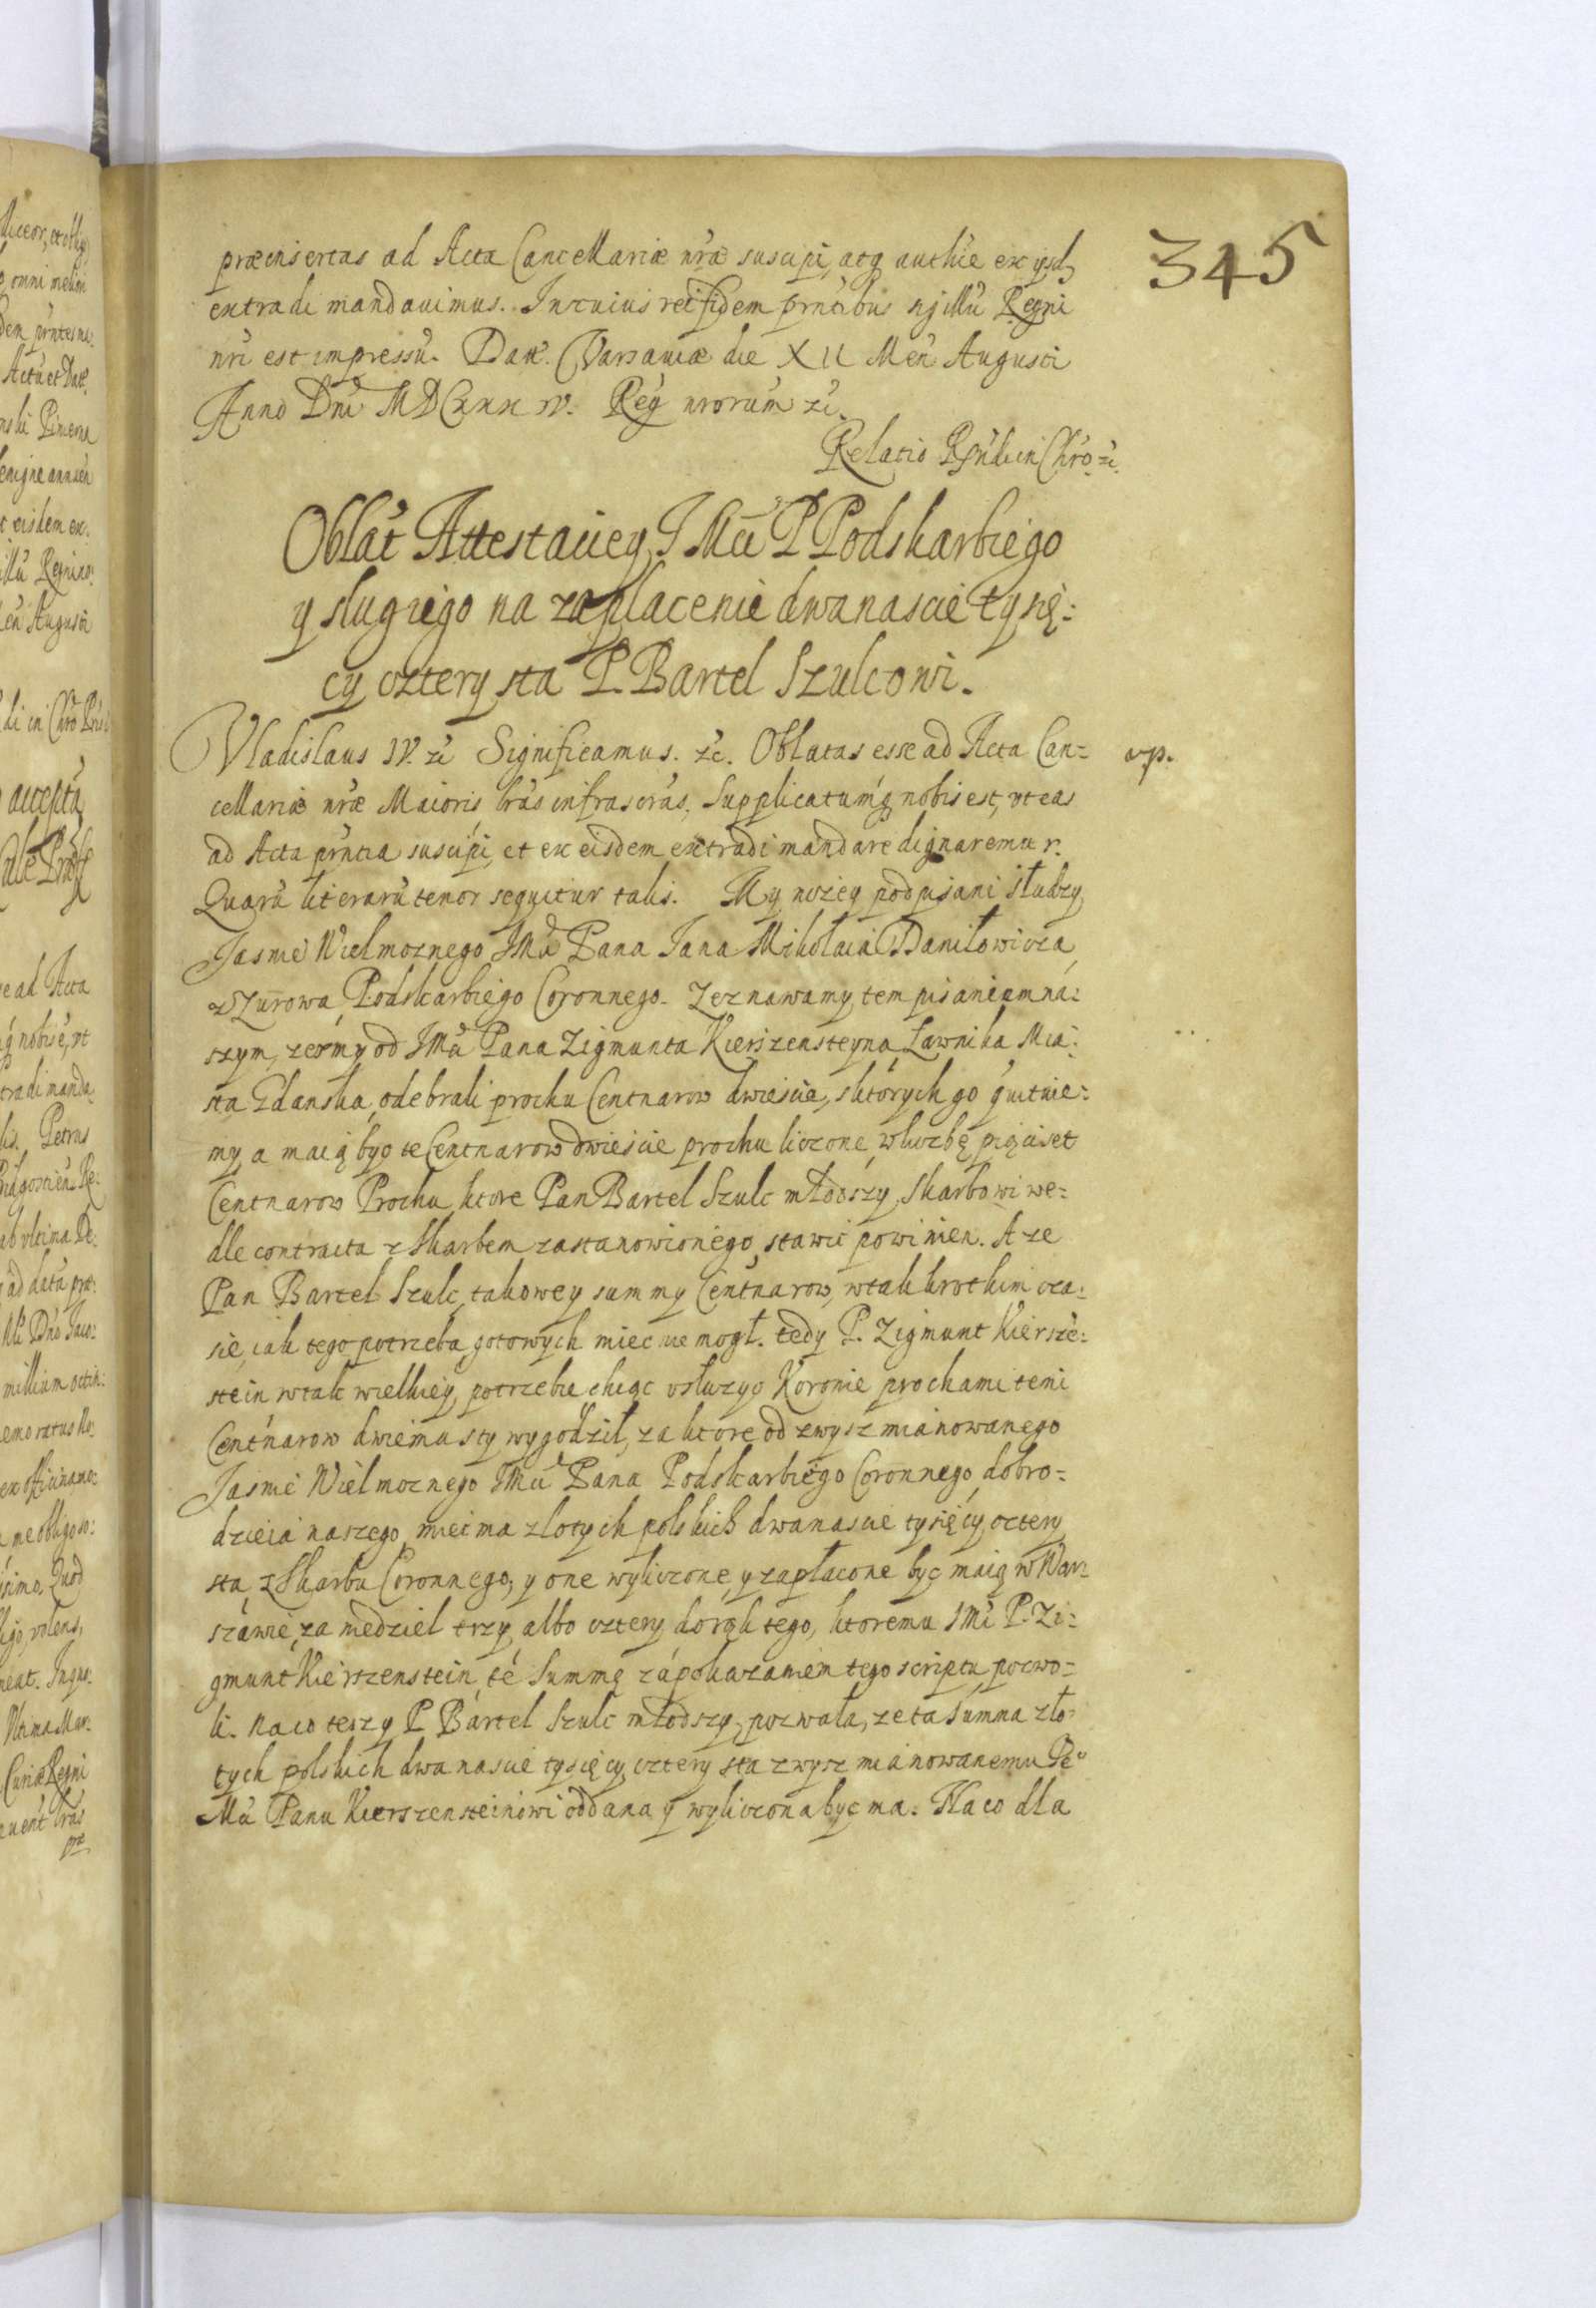 345
præinsertas ad Acta Cancellariæ nræ suscipi, atq authce ex ysd
extradi mandauimus. In cuius rei fidem prntibus sigillu Regni
nri est impressu. Datt. Varsauiæ die XII Men Augusti
Anno Dni MDCXXXIV. Reg nrorum zc.
Relatio Rsndi in Chro. zc.
Oblat Attestaciey J Mci P Podskarbiego
y slug iego na zaplacenie dwanascie tysię:
cy cztery sta P. Bartel Szulcowi.
Vladislaus IV. zc Significamus. zc. Oblatas esse ad Acta Can=
vp.
cellariæ nræ Maioris lras infrascras, supplicatumq nobis est, vt eas
ad Acta prntia suscipi, et ex eisdem extradi mandare dignaremur.
Quaru literaru tenor sequitur talis. My nizey podpisani słudzy
Jasnie Wielmoznego JMci Pana Jana Mikołaia Daniłowicza
z Zurowa, Podskarbiego Coronnego. Zeznawamy tem pisaniem na:
szym, zesmy od JMci Pana Zigmunta Kierszensteyna Ławnika Mia:
sta Gdanska, odebrali prochu Centnarow dwiescie, sktórych go quituie:
my, a maią byc te Centnarow dwieście prochu liczone, wliczbę pięciset
Centnarow Prochu, ktore Pan Bartel Szulc młodszy, Skarbowi we=
dle contracta z Skarbem zastanowionego, stawic powinien. A ze
Pan Bartel Szulc, takowey summy Centnarow, wtak krotkim cza:
sie, iak tego potrzeba, gotowych miec nie mogł. tedy P. Zigmunt Kiersze:
stein wtak wielkiey potrzebie chcąc vsłuzyc Koronie prochami temi
Centnarow dwiema sty wygodził, za ktore od zwysz mianowanego
Jasnie Wielmoznego JMci Pana Podskarbiego Coronnego, dobro=
dzieia naszego, miec ma zlotych polskich dwanascie tysięcy, cztery
sta z Skarbu Coronnego, y one wyliczone, y zapłacone byc maią w War:
szawie, za niedziel trzy albo cztery do rąk tego, ktoremu JMc P. Zi:
gmunt Kierszenstein, te Summę zá pokazaniem tego scriptu pozwo=
li. Na co teszy P Bartel Szulc młodszy, pozwala, ze ta summa zło=
tych polskich dwanascie tysięcy, cztery sta zwysz mianowanemu Je°
Mci Panu Kierszensteinowi oddana y wyliczona byc ma. Na co dla